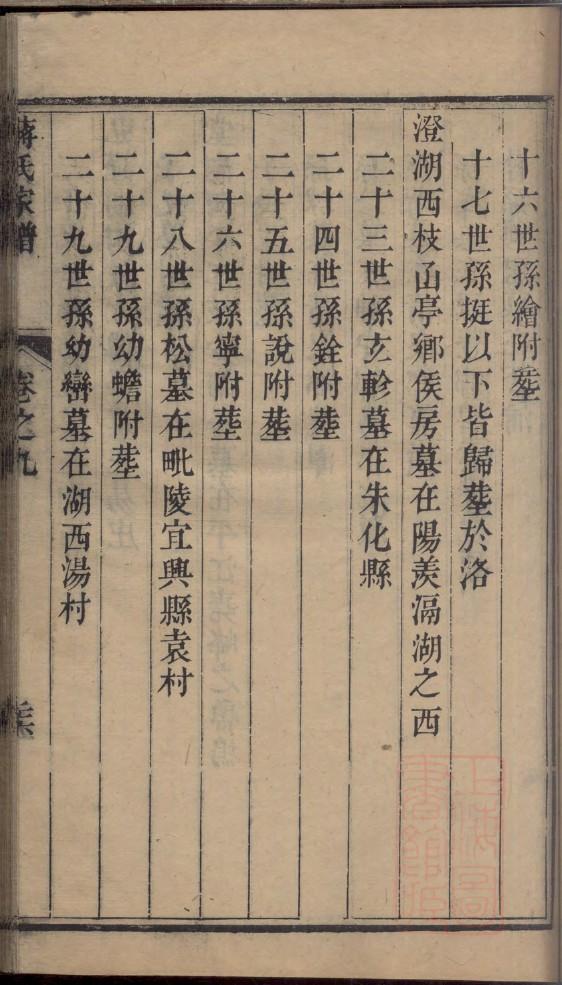 十六世孫繪附塟
十七世孫挺以下皆歸塟於洛
澄湖西枝𠙖亭鄉侯房墓在陽羨滆湖之西
二十三世孫玄軫墓在朱化縣
二十四世孫銓附塟
二十五世孫說附塟
二十六世孫寧附塟
二十八世孫松墓在毗陵宜興縣袁村
二十九世孫幼蟾附塟
二十九世孫幼巒墓在湖西湯村
蔣氏家譜
卷之九